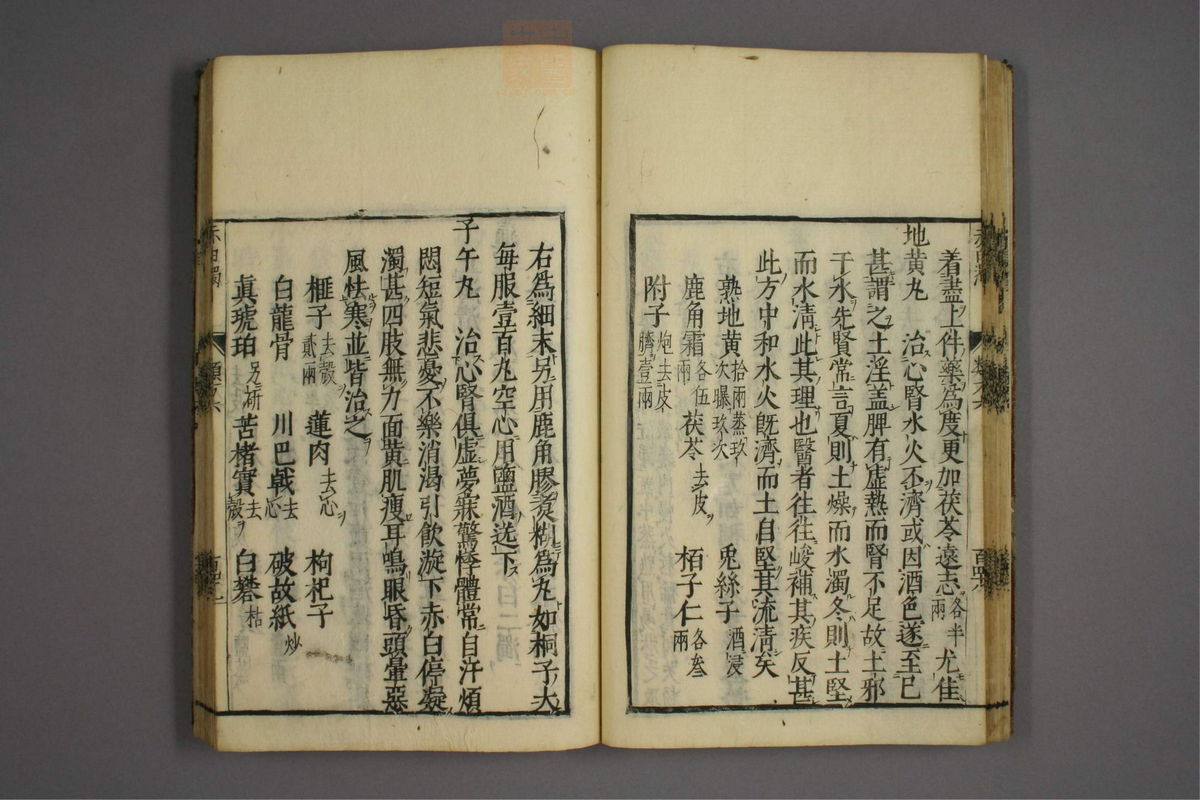 着盡上件藥為度更加茯苓遠志各半兩尤佳
地黃丸 治心腎水火不濟或因酒色遂至已
甚謂之土淫盖脾有虛熱而腎不足故土邪
于水先賢常言夏則土燥而水濁冬則土堅
而水清此其理也醫者往往峻補其疾反甚
此方中和水火既濟而土自堅其流清矣
熟地黃拾兩蒸玖次曝玖次 兎絲子酒浸
鹿角霜各伍兩 茯苓去皮 栢子仁各叁兩
附子炮去皮臍壹兩
右為細末另用鹿角膠煑糊為丸如桐子大
每服壹百丸空心用鹽酒送下
子午丸 治心腎俱虛夢寐驚悸體常自汗煩
悶短氣悲憂不樂消渴引飲漩下赤白停凝
濁甚四肢無力面黃肌瘦耳鳴眼昏頭暈惡
風怯寒並皆治之
榧子去殼貳兩 蓮肉去心 枸杞子
白龍骨 川巴戟去心 破故紙炒
眞琥珀另研 苦楮實去殼 白礬枯